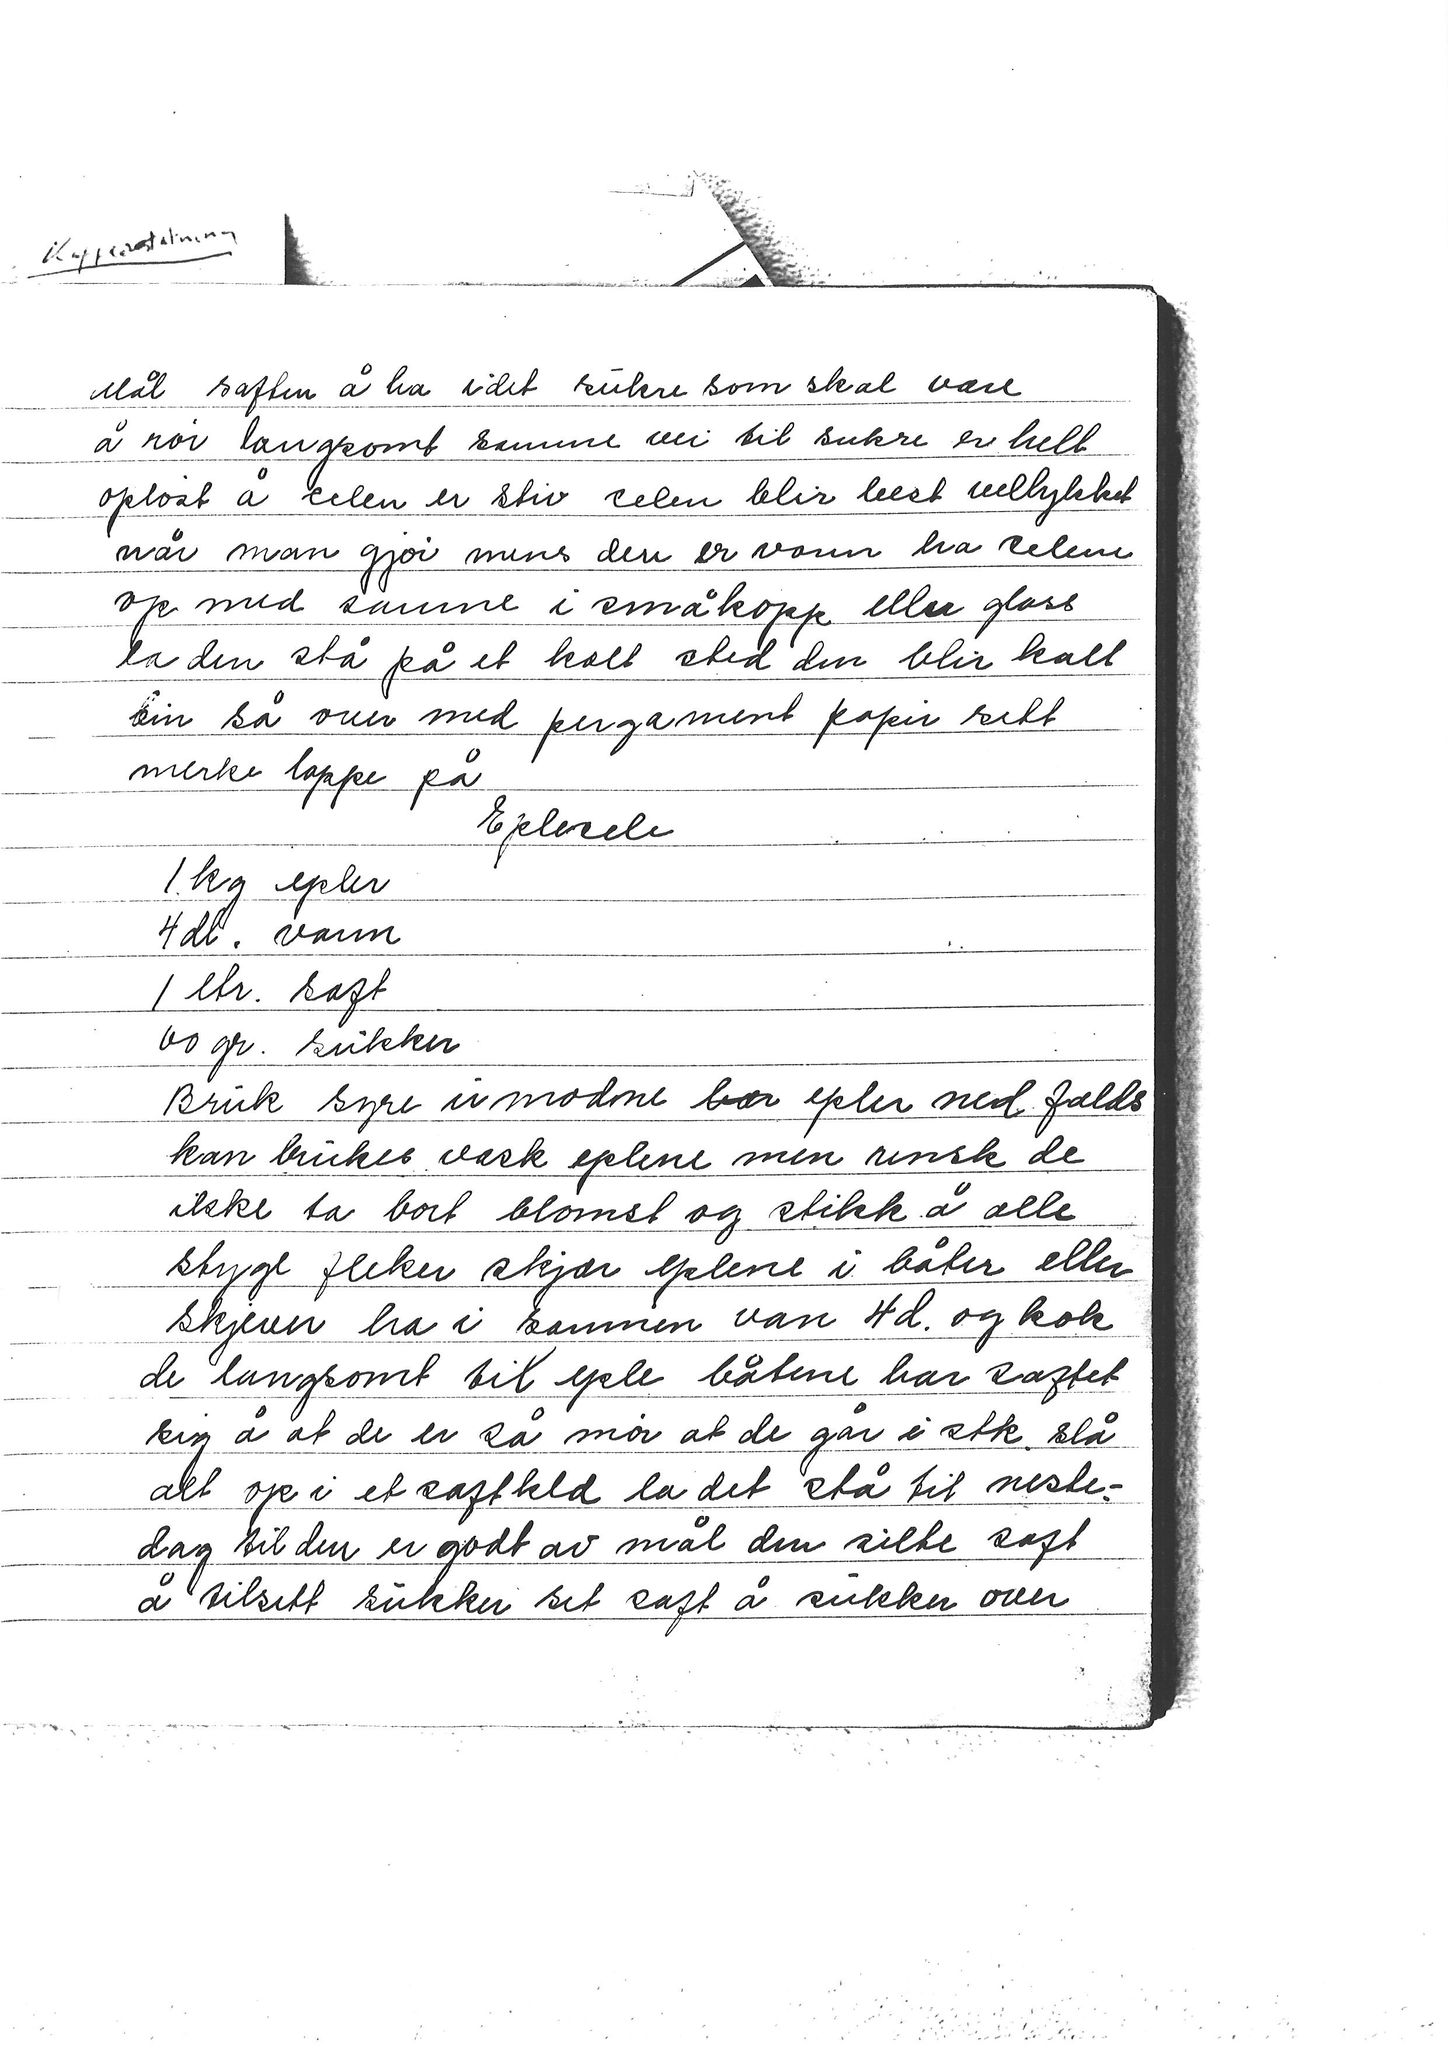 Kaffeerstatning
Mål saften å ha idet sukre som skal være
å rör langsomt samme vei til sukre er helt
oplöst å selen er stiv selen blir best vellykket
når man gjöi mens den er varm ha selene
op med samme i småkopp eller glass
la den stå på et kalt sted den blir kalt
bin så over med pergament papir sett
merke lappe på
Eplesele
1 kg epler
4 dl. vann
1 ltr. saft
00 gr. sukker
Bruk syre umodne epler nedfalds
kan brukes vask eplene men rensk de
ikke ta bort blomst og stikk å alle
styge fleker skjær eplene i båter eller
skjever ha i sammen van 4 d. og kok
de langsomt til eple båtene har saftet
sig å at de er så mör at de går i stk. slå
alt op i et saftkld la det stå til neste-
dag til den er godt av mål den silte saft
å tilsett sukker set saft å sukker over